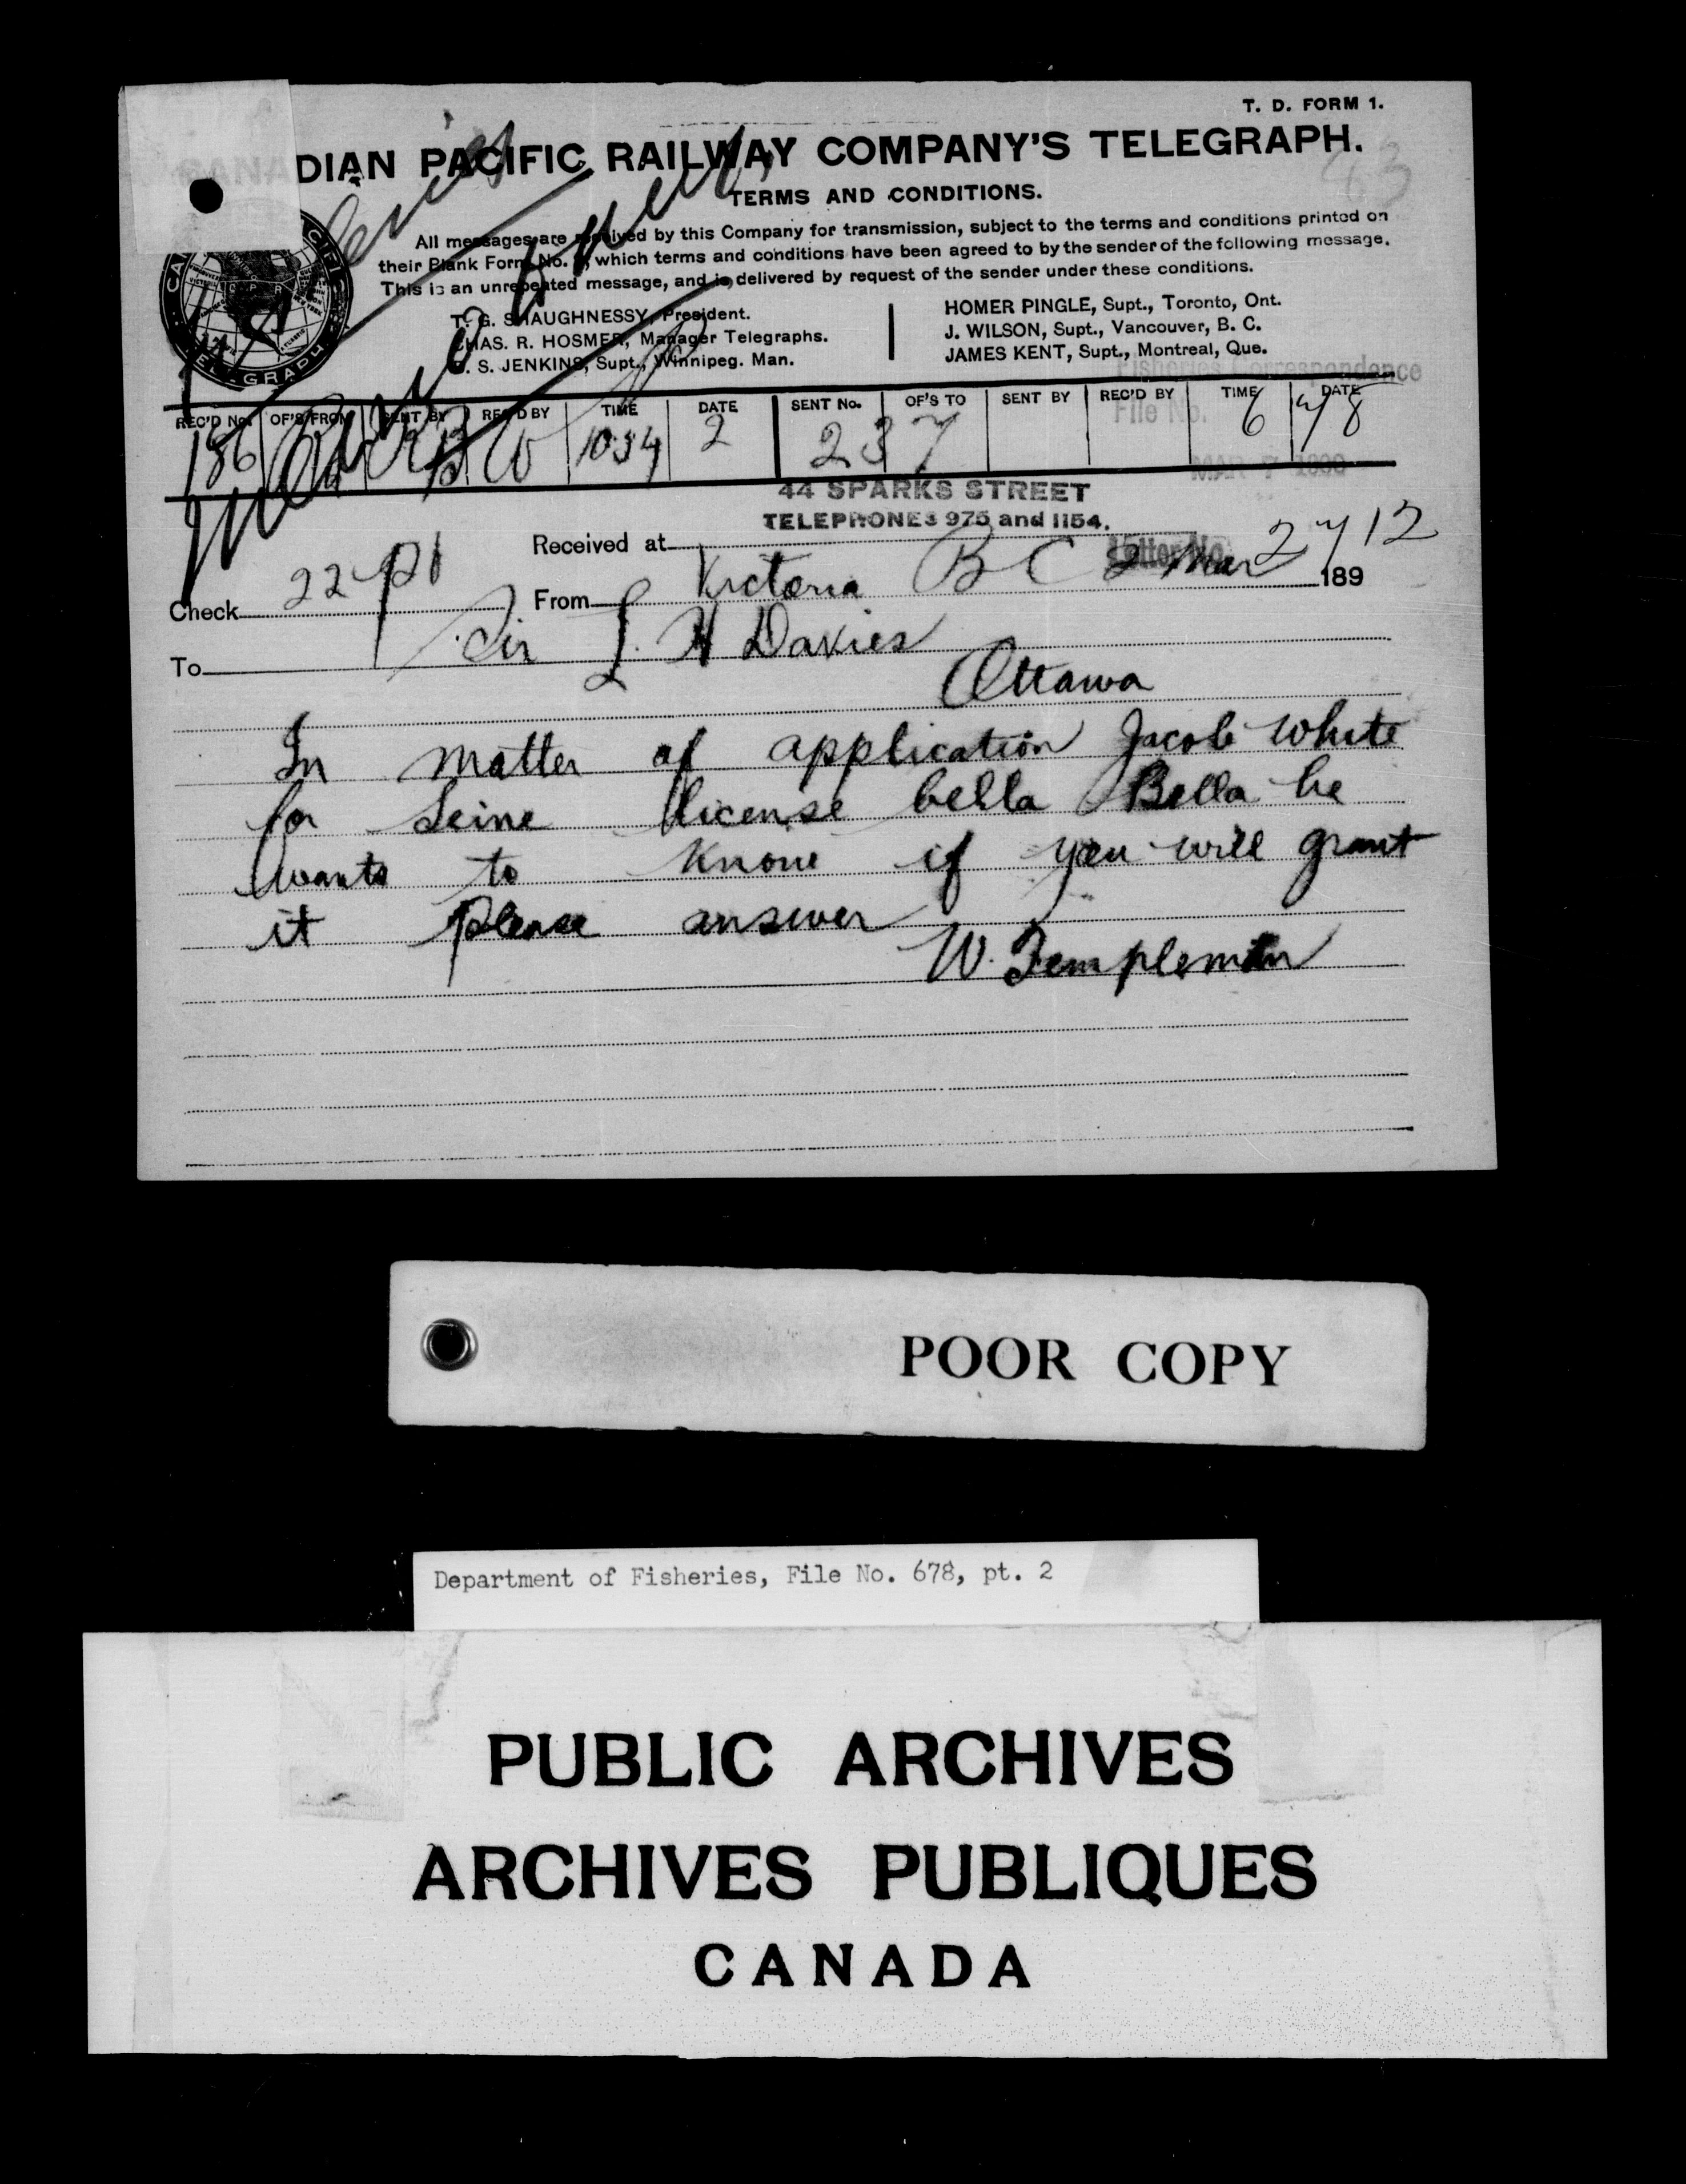 T. D. FORM 1.
CANADIAN PACIFIC RAILWAY COMPANY'S TELEGRAPH.
43
TERMS AND CONDITIONS.
All messages are received by this Company for transmission, subject to the terms and conditions printed on
their Blank Form No. 2, which terms and conditions have been agreed to by the sender of the following message.
This is an unrepeated message, and is delivered by request of the sender under these conditions.
T. G. SHAUGHNESSY, President.
CHAS. R. HOSMER, Manager Telegraphs.
S. JENKINS, Supt., Winnipeg. Man.
HOMER PINGLE, Supt., Toronto, Ont.
J. WILSON, Supt., Vancouver, B. C.
JAMES KENT, Supt., Montreal, Que.
Fisheries Correspondence
REC'D No. OF'S FROM SENT BY REC'D BY TIME DATE SENT No. OF'S TO SENT BY REC'D BY TIME DATE
File No.
186 10 34 2 237 6
MAR 7
44 SPARKS STREET
TELEPHONES 975 and 1154.
Received at
Letter No.
Check 22 From Victoria B C 2 Mar 189
To Sir L. H Davies
Ottawa
In matter of application Jacob White
for Seine license bella Bella he
wants to know if you will grant
it please answer
W. Templeman
POOR COPY
Department of Fisheries, File No. 678, pt. 2
PUBLIC ARCHIVES
ARCHIVES PUBLIQUES
CANADA